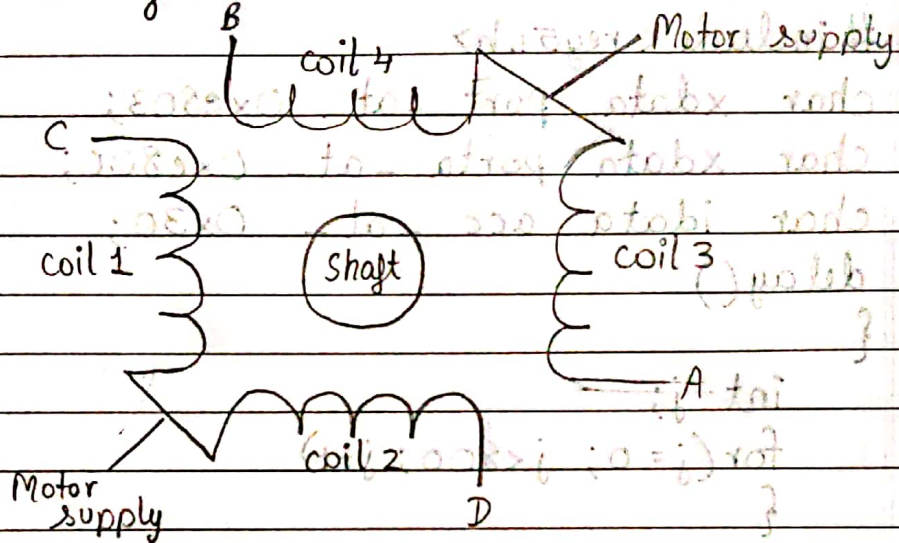 B
coil 4
Motor supply
C
coil 1
Shaft
coil 3
A
coil 2
Motor
supply
D